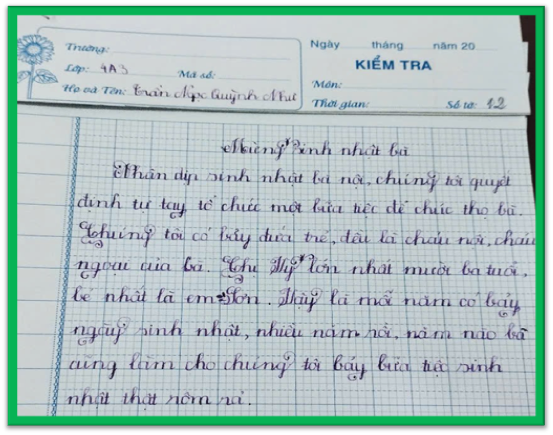 Trường:
Lớp: 4A3 Mã số:
Họ và Tên: Trần Ngọc Quỳnh Như
Ngày tháng năm 20
KIỂM TRA
Môn:
Thời gian: Số tờ: 12
Mừng sinh nhật bà
Nhân dịp sinh nhật bà nội, chúng tôi quyết
định tự tay tổ chức một bữa tiệc để chúc thọ bà.
Chúng tôi có bảy đứa trẻ, đều là cháu nội, cháu
ngoại của bà. Chị Mỹ lớn nhất mười ba tuổi,
bé nhất là em Sơn. Vậy là mỗi năm có bảy
ngày sinh nhật, nhiều năm rồi, năm nào bà
cũng làm cho chúng tôi bảy bữa tiệc sinh
nhật thật rôm rả.